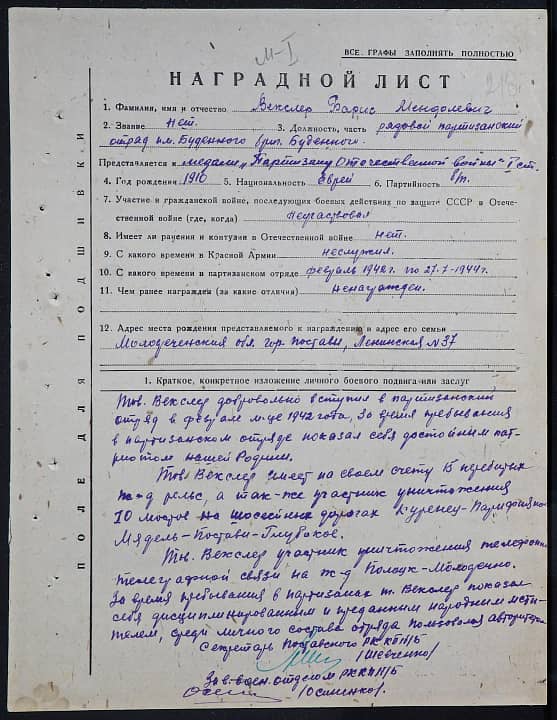 М-I
ВСЕ ГРАФЫ ЗАПОЛНЯТЬ ПОЛНОСТЬЮ
НАГРАДНОЙ ЛИСТ
1. Фамилия, имя и отчество Векслер Барис Мендолевич
2. Звание Нет. 3. Должность, часть рядовой партизанский
отряд им. Буденного
Представляется к медали „Партизану Отечественной войны" I ст.
4. Год рождения 1910 5. Национальность Еврей 6. Партийность б/п.
7. Участие в гражданской войне, последующих боевых действиях по защите СССР в Отече-
ственной войне (где, когда) Неучаствовал
8. Имеет ли ранения и контузии в Отечественной войне нет.
9. С какого времени в Красной Армии неслужил.
10. С какого времени в партизанском отряде февраль 1942г. по 27.7-1944г.
11. Чем ранее награжден (за какие отличия) Ненагражден.
12. Адрес места рождения представляемого к награждению и адрес его семьи
Молодеченская обл. гор. Поставы, Ленинская N 37
1. Краткое, конкретное изложение личного боевого подвига или заслуг
Тов. Векслер добровольно вступил в партизанский
отряд в феврале м-це 1942 года, За время пребывания
в партизанском отряде показал себя достойным пат-
риотом нашей Родины.
Тов. Векслер имеет на своем счету 15 перебитых
ж-д рельс, а так-же участник уничтожения
10 мостов на шоссейных дорогах Куренец-
Мядель-Поставы-Глубокое.
Тов. Векслер участник уничтожения телефонно
телеграфной связи на ж-д Полоцк-Молодечно.
За время пребывания в партизанах т. Векслер показал
себя дисциплинированным и преданным народным мсти-
телем, среди личного состава отряда пользовался авторитетом
Секретарь Поставского РК КП/б/Б
/Шевченко/
Зав. воен. отделом РК КП/б/Б
/Осипенко/.
ПОЛЕ ДЛЯ ПОДШИВКИ